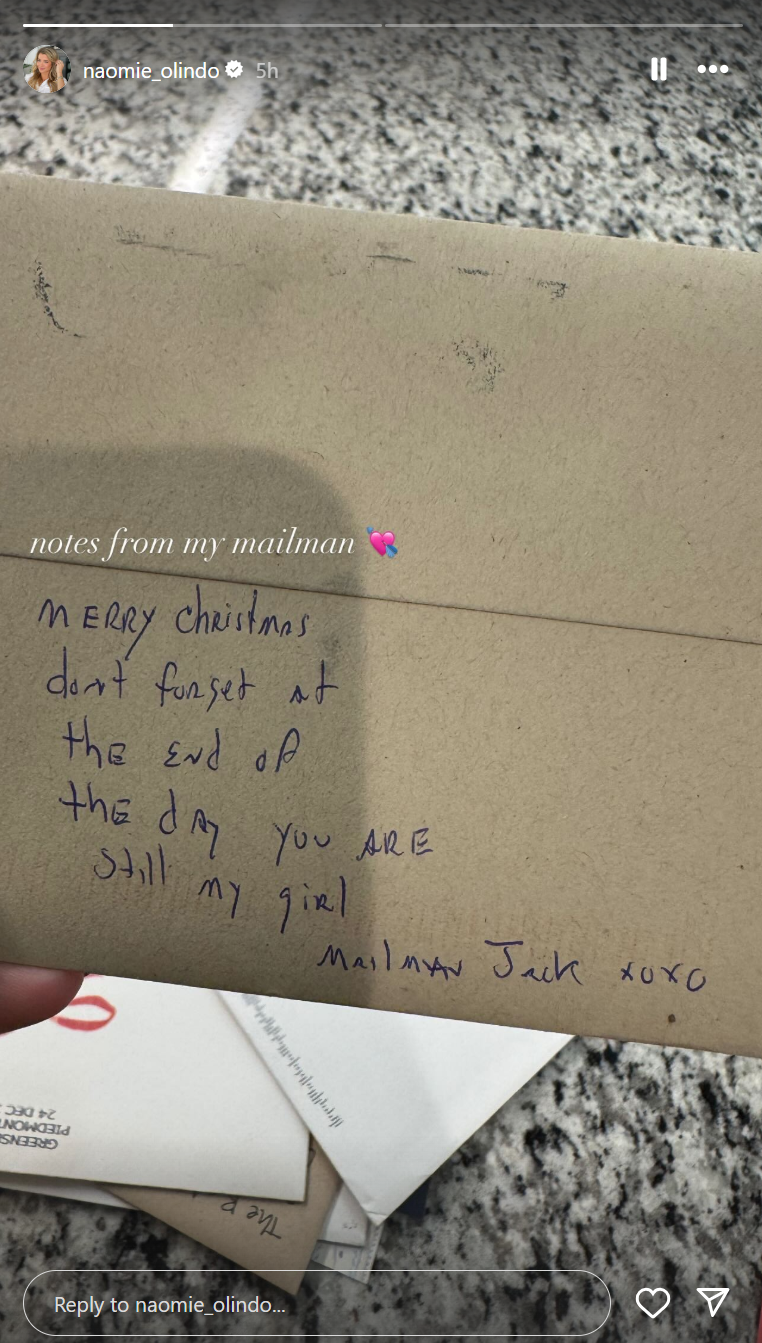 naomie_olindo 5h
notes from my mailman 💘
MERRY Christmas
dont forget at
the End of
the day you ARE
still my girl
Mailman Jack xoxo
24 DEC
PIEDMONT
GREENS
The p
Reply to naomie_olindo...